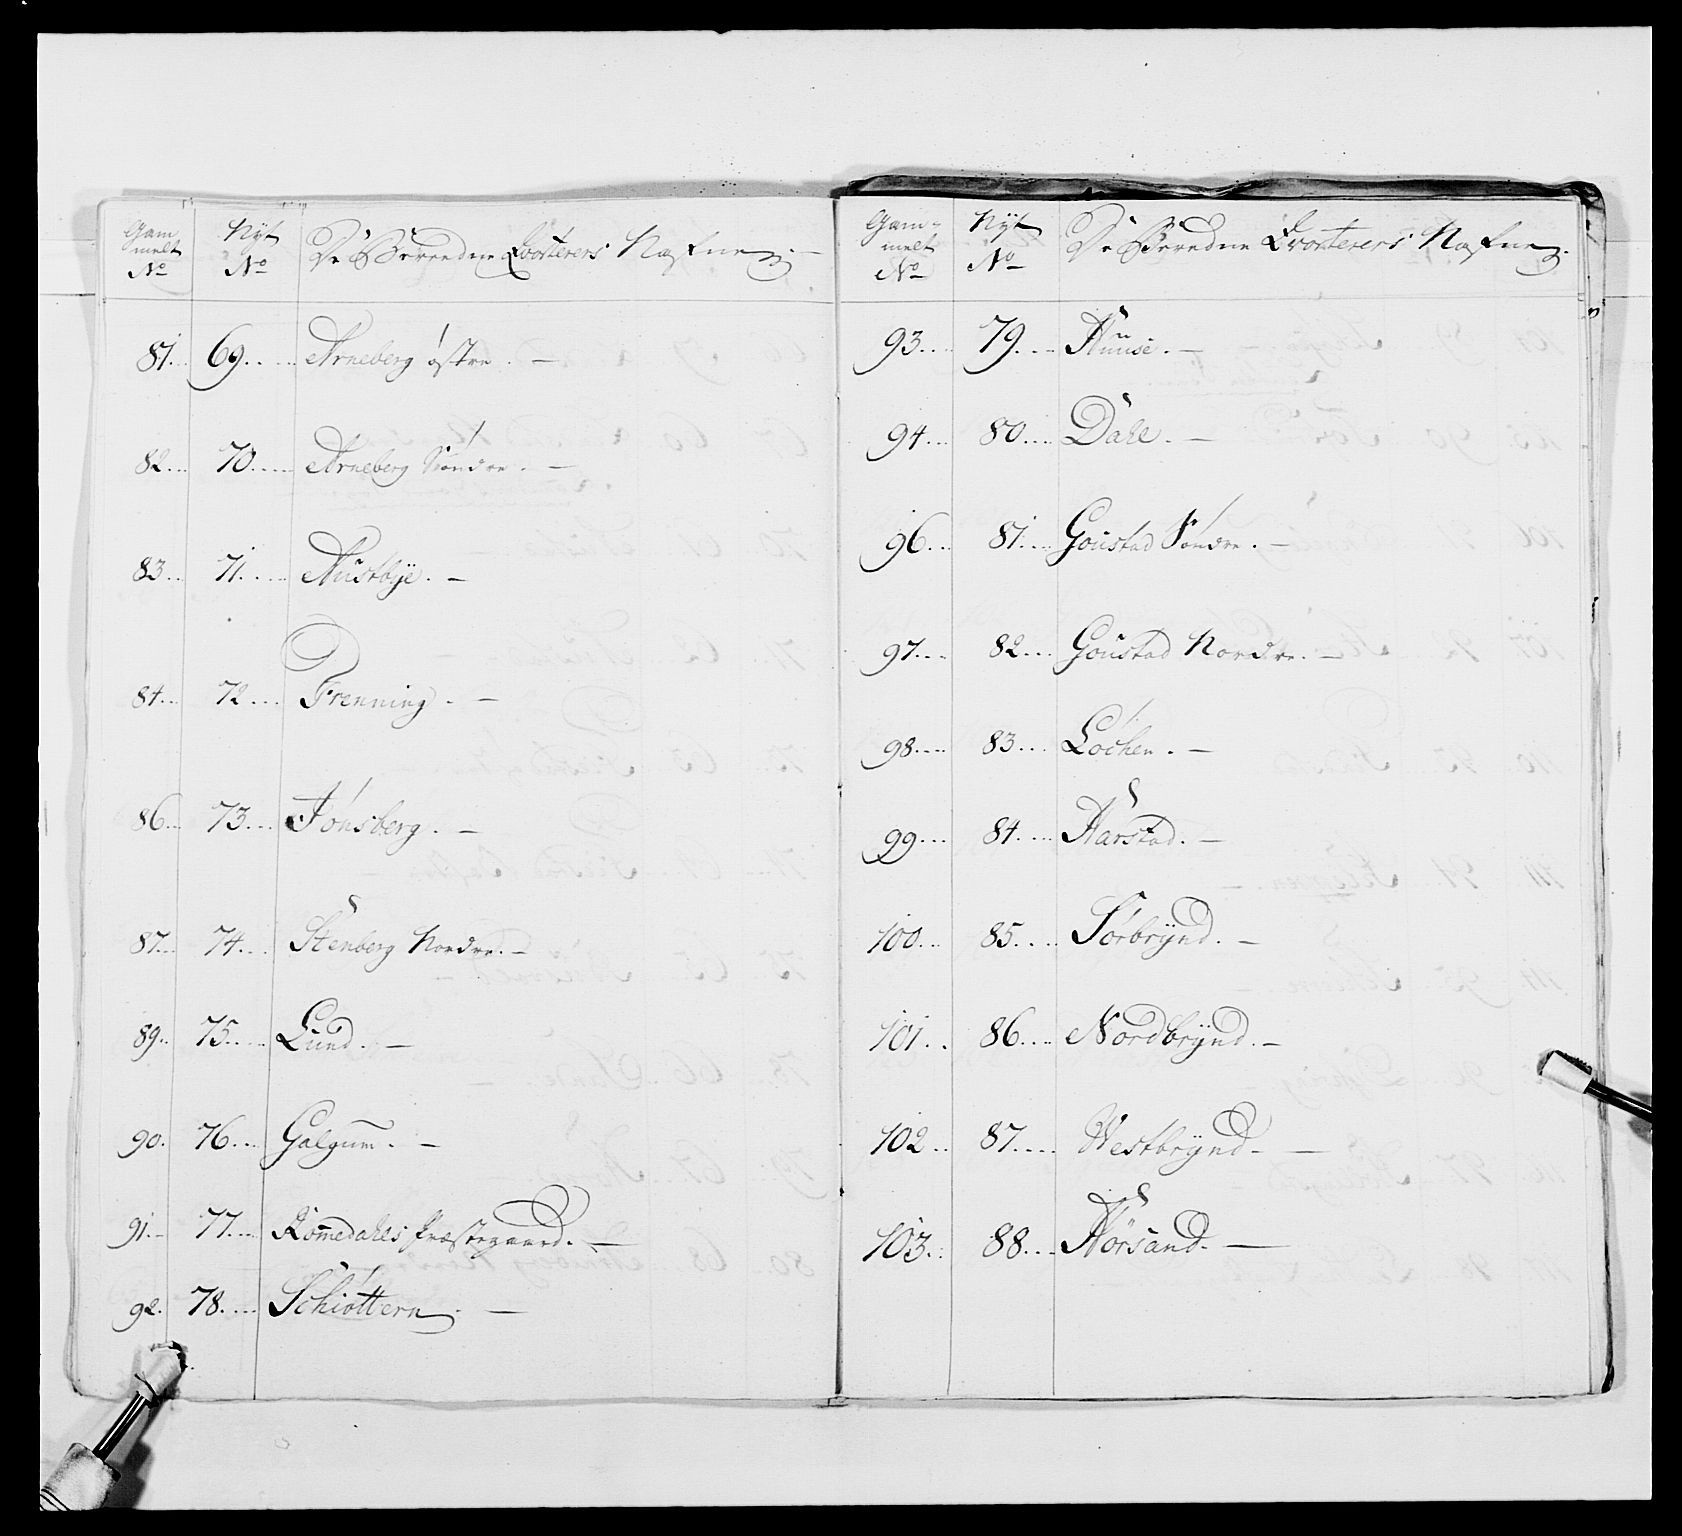 Gam
melt
No
Nyt
No
De Beredne Qvarterers Nafne
81... 69..... Arneberg østre. —
82... 70..... Arneberg Søndre. —
83... 71..... Austbye. —
84... 72... Frenning. —
86... 73... Tønsberg. —
87... 74... Stenberg Nordre. —
89.. 75..... Lund. —
90. 76... Galgum. —
91.. 77... Romedahls Præstegaard. —
92. 78..... Schiøttern. —
Gam-
melt
No
Nyt
No
De Beredne Qvarterers Nafne
93... 79... Huuse. —
94... 80.... Dahl. —
96... 81.... Goustad Søndre. —
97... 82... Goustad Nordre. —
98.... 83.... Løchen. —
99... 84.... Harstad. —
100... 85.... Sørbrÿnd. —
101.. 86.... Nordbrÿnd. —
102.. 87..... Westbrÿnd. —
103.. 88... Hörsand. —